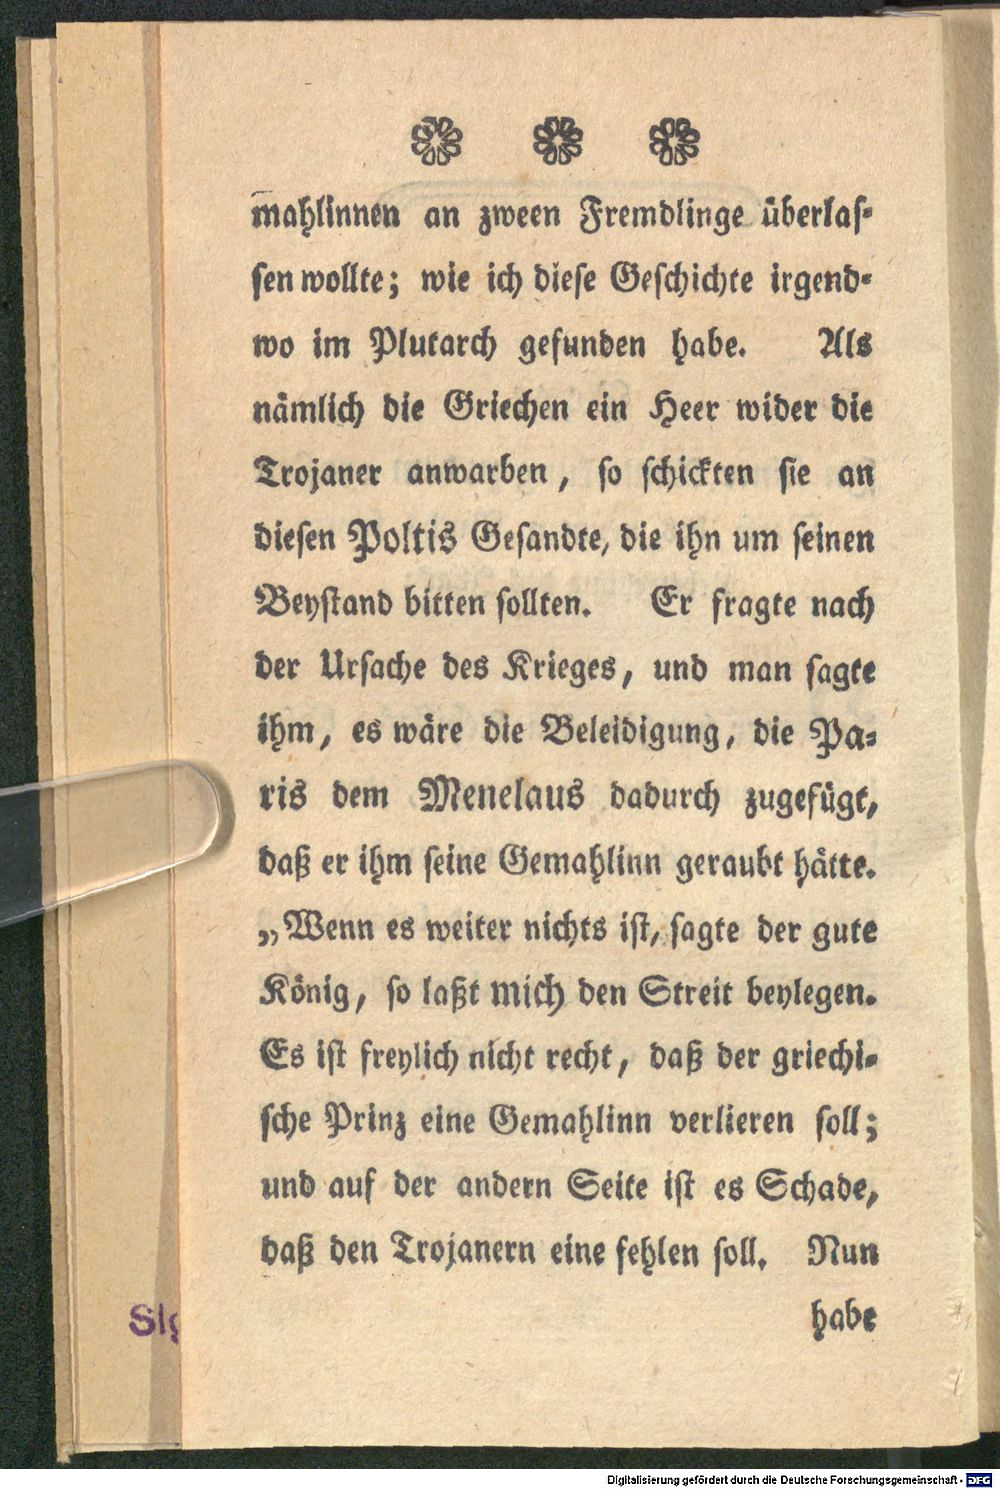 mahlinnen an zween Fremdlinge überlas-
sen wollte; wie ich diese Geschichte irgend-
wo im Plutarch gefunden habe. Als
nämlich die Griechen ein Heer wider die
Trojaner anwarben, so schickten sie an
diesen Poltis Gesandte, die ihn um seinen
Beystand bitten sollten. Er fragte nach
der Ursache des Krieges, und man sagte
ihm, es wäre die Beleidigung, die Pa-
ris dem Menelaus dadurch zugefügt,
daß er ihm seine Gemahlinn geraubt hätte.
„Wenn es weiter nichts ist, sagte der gute
König, so laßt mich den Streit beylegen.
Es ist freylich nicht recht, daß der griechi-
sche Prinz eine Gemahlinn verlieren soll;
und auf der andern Seite ist es Schade,
daß den Trojanern eine fehlen soll. Nun
habe
Digitalisierung gefördert durch die Deutsche Forschungsgemeinschaft - DFG